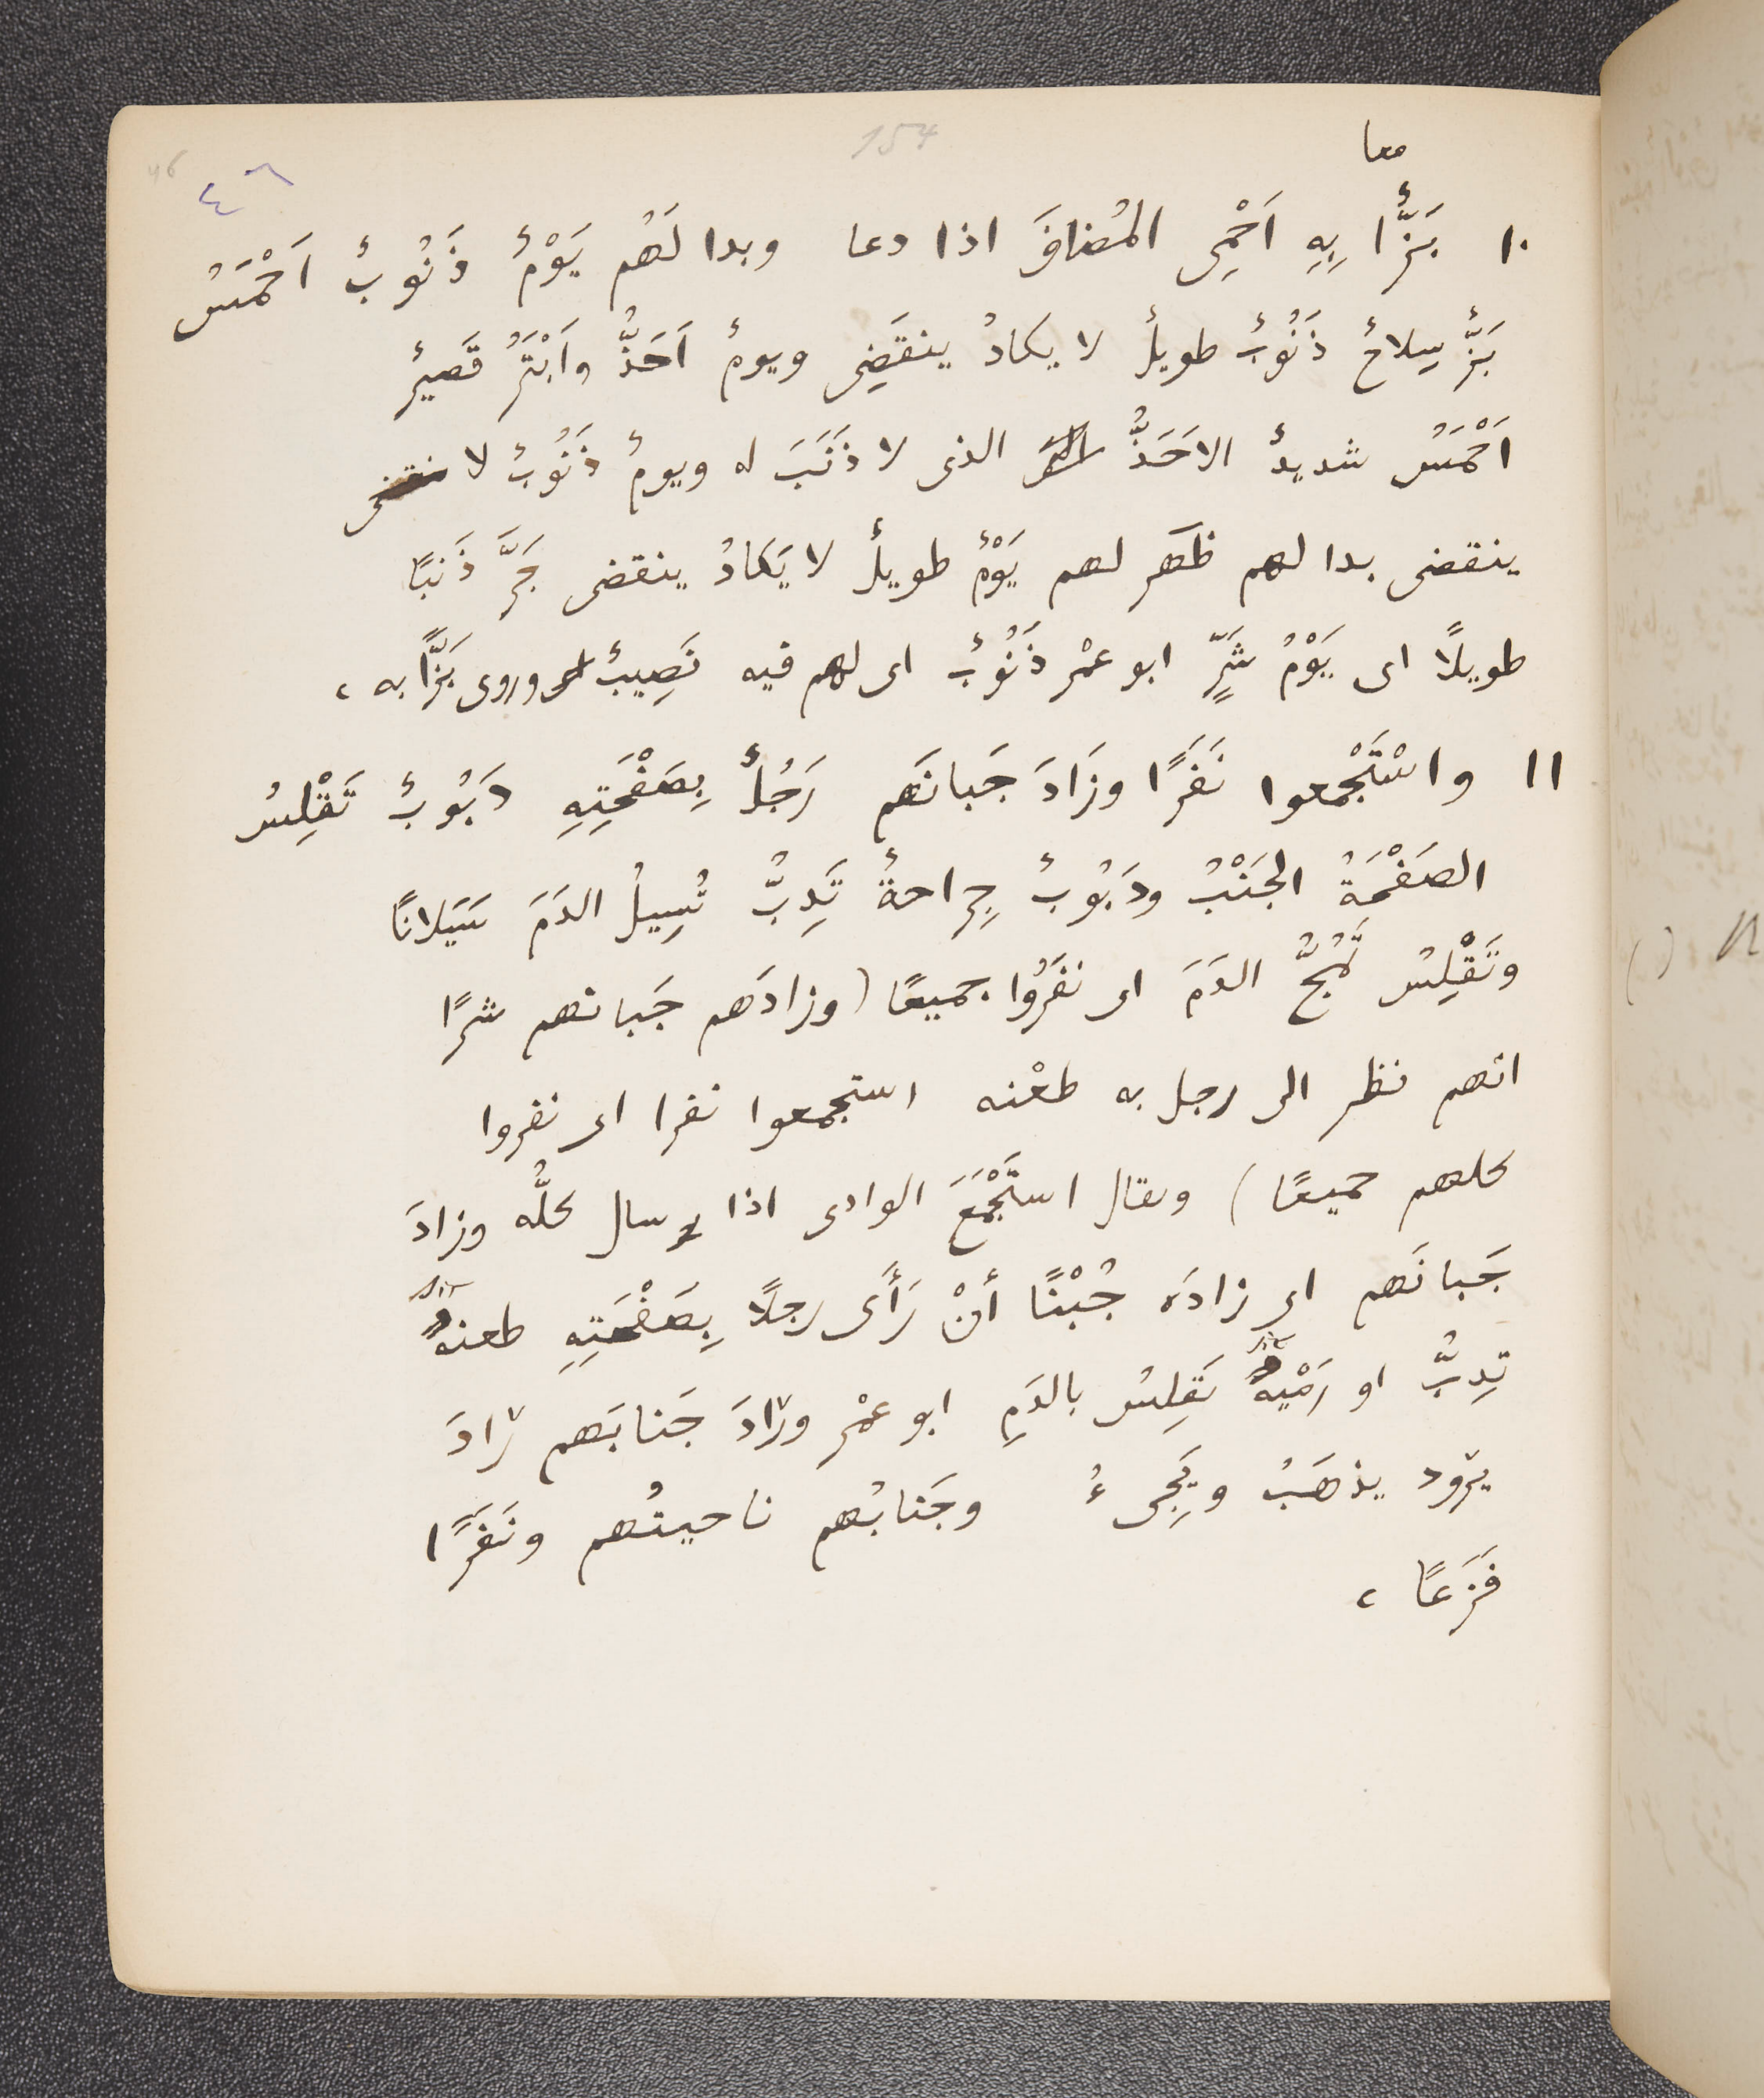 154
46
٤٦
معا
١٠ بَزٌّا بِهِ اَحْمِى المُضافَ اذا دعا وبدا لَهُم يَوْمٌ ذَنُوبٌ اَحْمَسُ
بَزٌّ سِلاحٌ ذَنُوبٌ طويلٌ لا يكادُ ينقَضِى ويومٌ اَحَذُّ واَبْتَرُ قَصيرٌ
اَحْمَسُ شديدٌ الاحَذُّ الذى لا ذَنَبَ له ويومٌ ذَنُوبٌ لا
ينقضى بدا لهم ظَهر لهم يَوْمٌ طويلٌ لا يَكادُ ينقضى جَرَّ ذَنَبًا
طويلًا اى يَوْمُ شَرٍّ ابو عمْر ذَنُوبٌ اى لهم فيه نَصِيبٌ وروى بَزًّا به ،
١١ واسْتَجْمعوا نَفَرًا وزَادَ جَبانَهم رَجُلٌ بِصَفْحَتِهِ دَبُوبٌ تَقْلِسُ
الصَفْحَةُ الجَنْبُ ودَبُوبٌ جِراحةٌ تَدِبُّ تُسِيلُ الدَمَ سَيَلانًا
وتَقْلِسُ تَمُجُّ الدَمَ اى نفَرُوا جميعًا (وزادَهم جَبانهم شرًا
انهم نظر الى رجل به طعْنه استجمعوا نفرا اى نفروا
كلهم جميعًا) ويقال استَجْمَعَ الوادى اذا سال كلُّه وزادَ
جَبانَهم اى زادَه جُبْنًا أنْ رَأَى رجلًا بِصَفْحَتِهِ طعنهٌ
تِدِبُّ او رَمْيهٌ تَقلِسُ بالدَمِ ابو عمْر وزادَ جَنابَهم زادَ
يزود يذهَبُ ويَجِىءُ وجَنابُهم ناحيتُهم ونَفَرًا
فَزَعًا ،